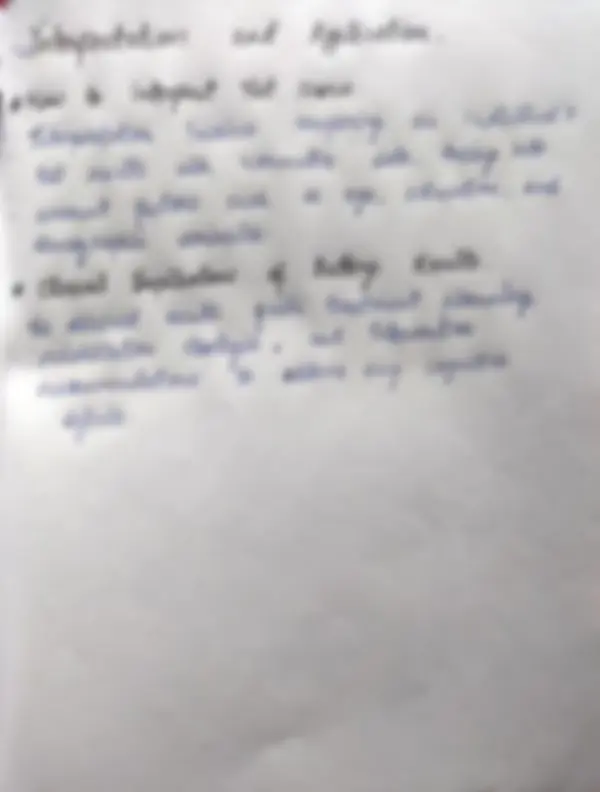 Interpretation and Application.
• How to interpret test scores
Interpretation involves comparing an individual's
test results with normative data, taking into
account factors such as age, education, and
demographic variables
• Clinical Implications of Battery Results
The results guide treatment planning,
rehabilitation strategies, and
recommendations to address any cognitive
deficits